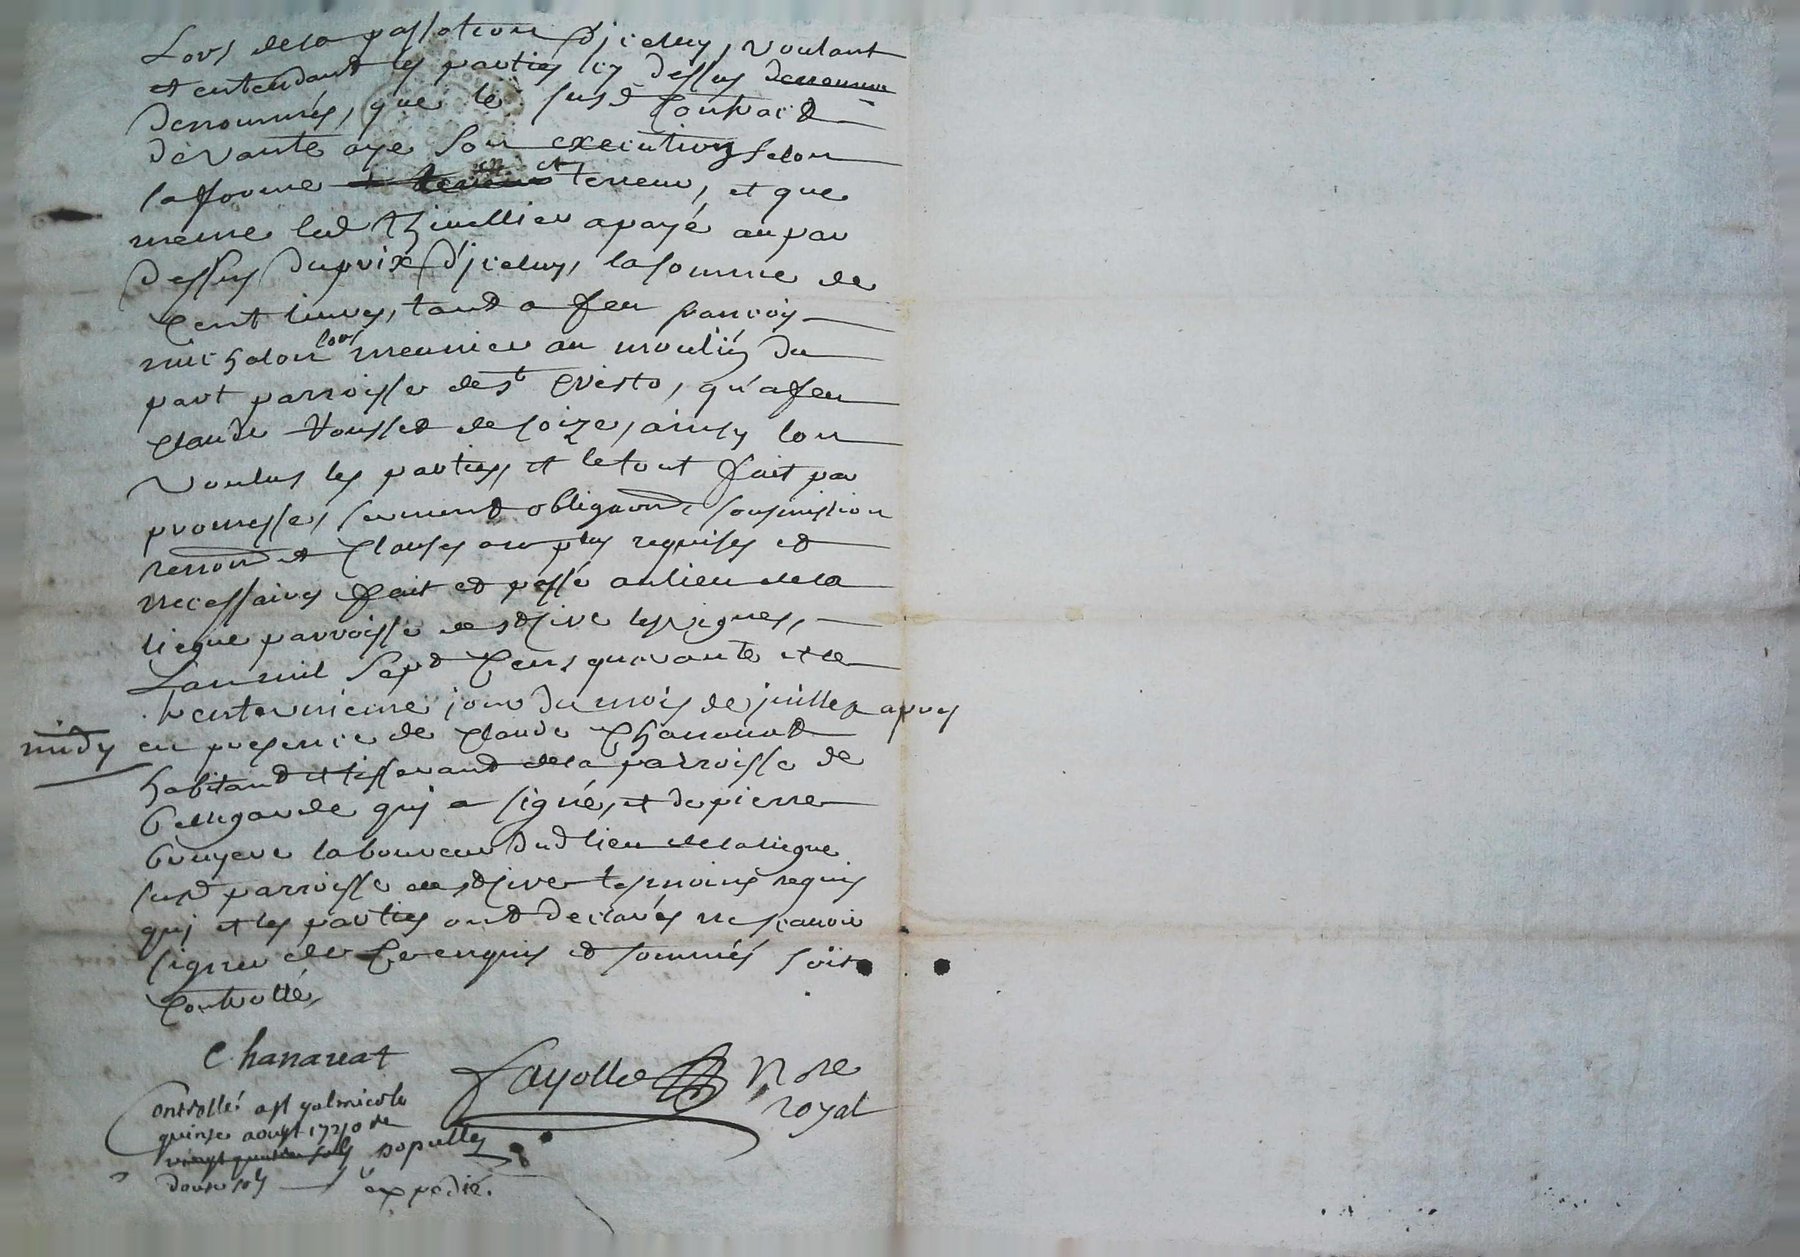 Lors de la passation d'jceluy, voulant
et entendant les parties cy dessus denomme
denommés, que le susd Contract
devante aye son execution selon
la forme et teneur, et que
meme led Thivellier a payé au par
dessus du prix d'jceluy, la somme de
Cent livres, tant a feu francois
michalon lors meunier au moulin du
part parroisse de st Priest, qu'a feu
Claude Vousset de soize, ainsy lon
voulus les parties, et le tout fait par
promesse, serment obligaond, sousmission
renond et Clauses au plus requises et
necessaires fait et passé au lieu de la
liegue parroisse de st Cire les vignes,
L'an mil sept Cens quarante et le
trente unieme jour du mois de juillet apres
midy en presence de Claude Chanavat
habitant et tisserand de la parroisse de
Bellegarde qui a signé, et de pierre
Bruyere laboureur dud lieu de la liegue
susd parroisse de st Cire tesmoins requis
qui et les parties ont declarés ne scavoir
signer de Ce enquis et sommés soit
Controllé,
Chanavat
Fayolle Nore
royal
Controllé a st galmier le
quinze aoust 1740 R
vingt quatre sols
douze sols expedié.